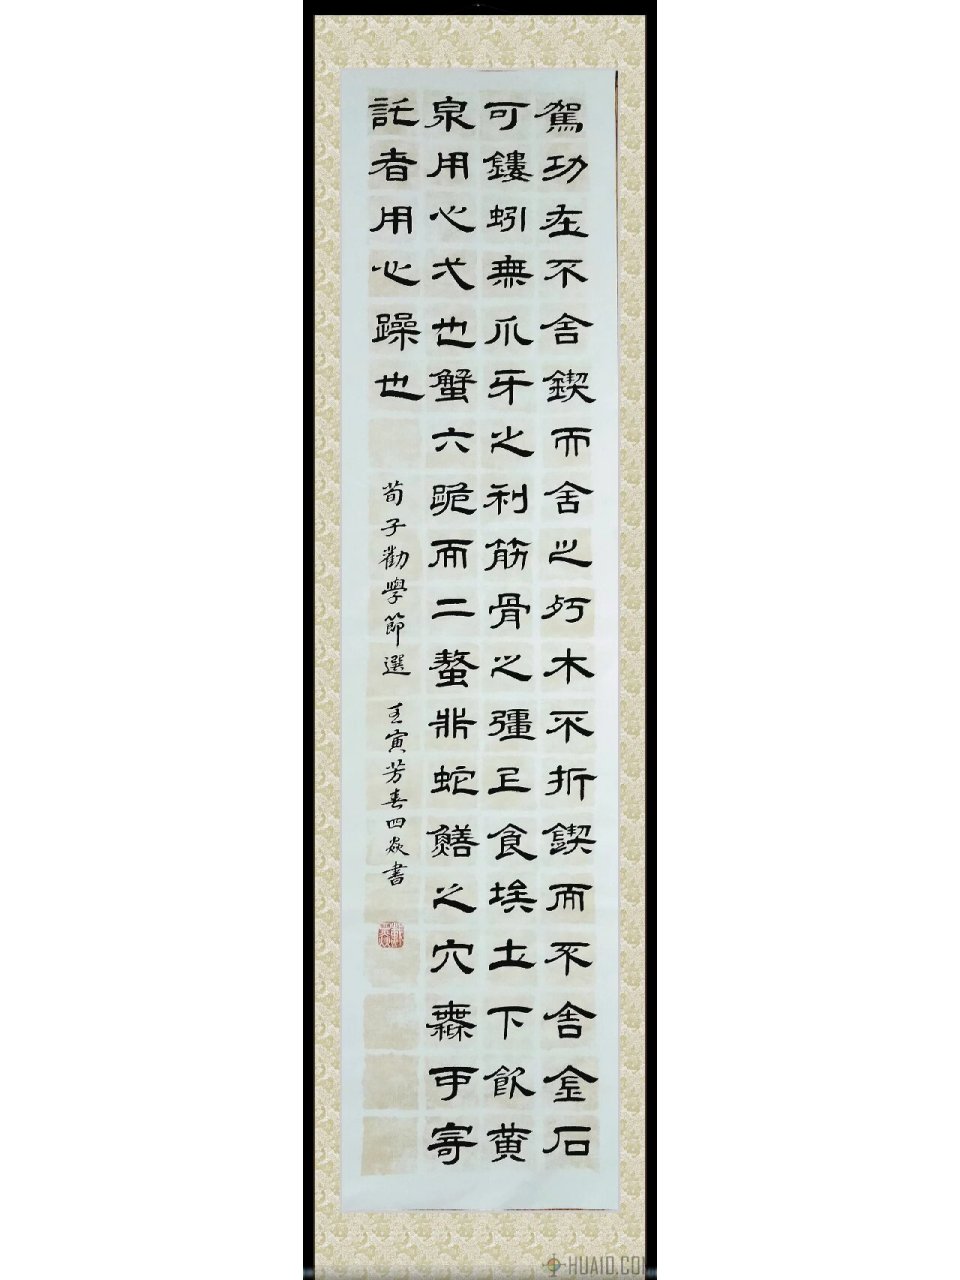 駕功在不舍鍥而舍之朽木不折鍥而不舍金石
可鏤蚓無爪牙之利筋骨之彊上食埃土下飲黃
泉用心弌也蟹六跪而二螯非蛇鱔之穴無可寄
託者用心躁也
荀子勸學節選 壬寅芳春四焱書
HUAID.COM